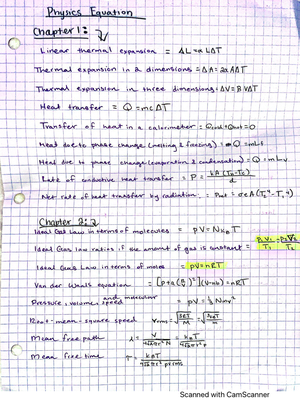 Physics Equation
Chapter 1:
Linear thermal expansion = ΔL = αLΔT
Thermal expansion in 2 dimensions = ΔA = 2αAΔT
Thermal expansion in three dimensions: ΔV = βVΔT
Heat transfer = Q = mcΔT
Transfer of heat in a calorimeter = Qcold + Qhot = 0
Heat due to phase change (melting & freezing) = Q = mLf
Heat due to phase change (evaporation & condensation) = Q = mLv
Rate of conductive heat transfer = P = kA(Th-Tc)/d
Net rate of heat transfer by radiation = Pnet = σeA(T₂⁴-T₁⁴)
Chapter 2:
Ideal Gas Law in terms of molecules = pV = NkBT
Ideal Gas law ratios if the amount of gas is constant = P₁V₁/T₁ = P₂V₂/T₂
Ideal Gas Law in terms of moles = pV = nRT
Van der Walls equation = [p+a(n/V)²](V-nb) = nRT
Pressure, volume, and molecular speed = pV = 1/3 Nmv²
Root-mean-square speed vrms = √3RT/M = √3kBT/m
Mean free path λ = V/4√2πr²N = kBT/4√2πr²p
Mean free time τ = kBT/4√2πr²pvrms
Scanned with CamScanner